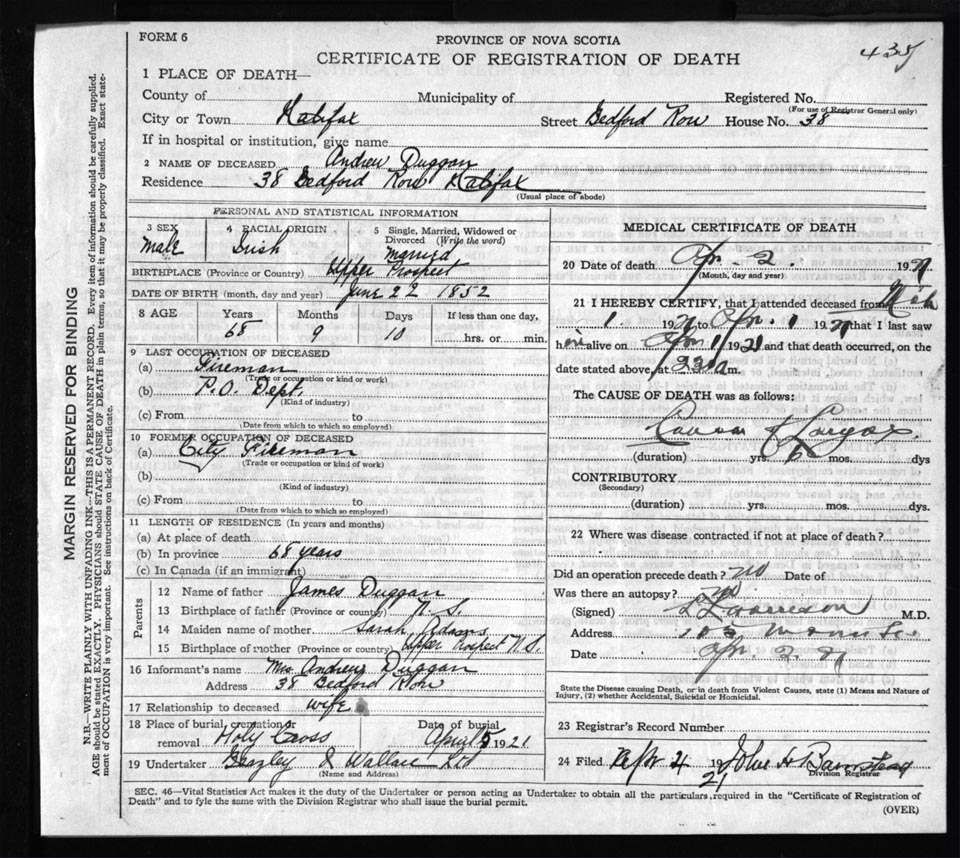 FORM 6
PROVINCE OF NOVA SCOTIA
435
CERTIFICATE OF REGISTRATION OF DEATH
1 PLACE OF DEATH—
County of Municipality of Registered No.
(For use of Registrar General only)
City or Town Halifax Street Bedford Row House No. 38
If in hospital or institution, give name
2 NAME OF DECEASED Andrew Duggan
Residence 38 Bedford Row Halifax
(Usual place of abode)
PERSONAL AND STATISTICAL INFORMATION
3 SEX 4 RACIAL ORIGIN 5 Single, Married, Widowed or Divorced (Write the word)
Male Irish Married
BIRTHPLACE (Province or Country) Upper Prospect
DATE OF BIRTH (month, day and year) June 22 1852
8 AGE Years Months Days If less than one day,
68 9 10 hrs. or min.
9 LAST OCCUPATION OF DECEASED
(a) Fireman
(Trade or occupation or kind or work)
(b) P.O. Dept.
(Kind of industry)
(c) From to
(Date from which to which so employed)
10 FORMER OCCUPATION OF DECEASED
(a) City Fireman
(Trade or occupation or kind of work)
(b)
(Kind of industry)
(c) From to
(Date from which to which so employed)
11 LENGTH OF RESIDENCE (In years and months)
(a) At place of death
(b) In province 68 years
(c) In Canada (if an immigrant)
Parents
12 Name of father James Duggan
13 Birthplace of father (Province or country) N. S.
14 Maiden name of mother Sarah Adams
15 Birthplace of mother (Province or country) Upper Prospect N. S.
16 Informant's name Mrs Andrew Duggan
Address 38 Bedford Row
17 Relationship to deceased wife
18 Place of burial, cremation or removal Holy Cross Date of burial April 5 1921
19 Undertaker & Wallace
(Name and Address)
MEDICAL CERTIFICATE OF DEATH
20 Date of death Apr. 2. 1921
(Month, day and year)
21 I HEREBY CERTIFY, that I attended deceased from Mch
1 1921 to Apr. 1 1921 that I last saw
him alive on Apr 1 1921 and that death occurred, on the
date stated above, at 230 a m.
The CAUSE OF DEATH was as follows:
Cancer of Larynx.
(duration) yrs. 6 mos. dys
CONTRIBUTORY
(Secondary)
(duration) yrs. mos. dys.
22 Where was disease contracted if not at place of death?
Did an operation precede death? no Date of
Was there an autopsy? no
(Signed) M.D.
Address
Date Apr. 2. 21
State the Disease causing Death, or in death from Violent Causes, state (1) Means and Nature of Injury, (2) whether Accidental, Suicidal or Homicidal.
23 Registrar's Record Number
24 Filed Apr 4 1921 John H Barnstead
Division Registrar
SEC. 46—Vital Statistics Act makes it the duty of the Undertaker or person acting as Undertaker to obtain all the particulars required in the "Certificate of Registration of
Death" and to fyle the same with the Division Registrar who shall issue the burial permit.
(OVER)
MARGIN RESERVED FOR BINDING
N.B.—WRITE PLAINLY WITH UNFADING INK—THIS IS A PERMANENT RECORD. Every item of information should be carefully supplied.
AGE should be stated EXACTLY. PHYSICIANS should STATE CAUSE OF DEATH in plain terms, so that it may be properly classified. Exact state-
ment of OCCUPATION is very important. See instructions on back of Certificate.